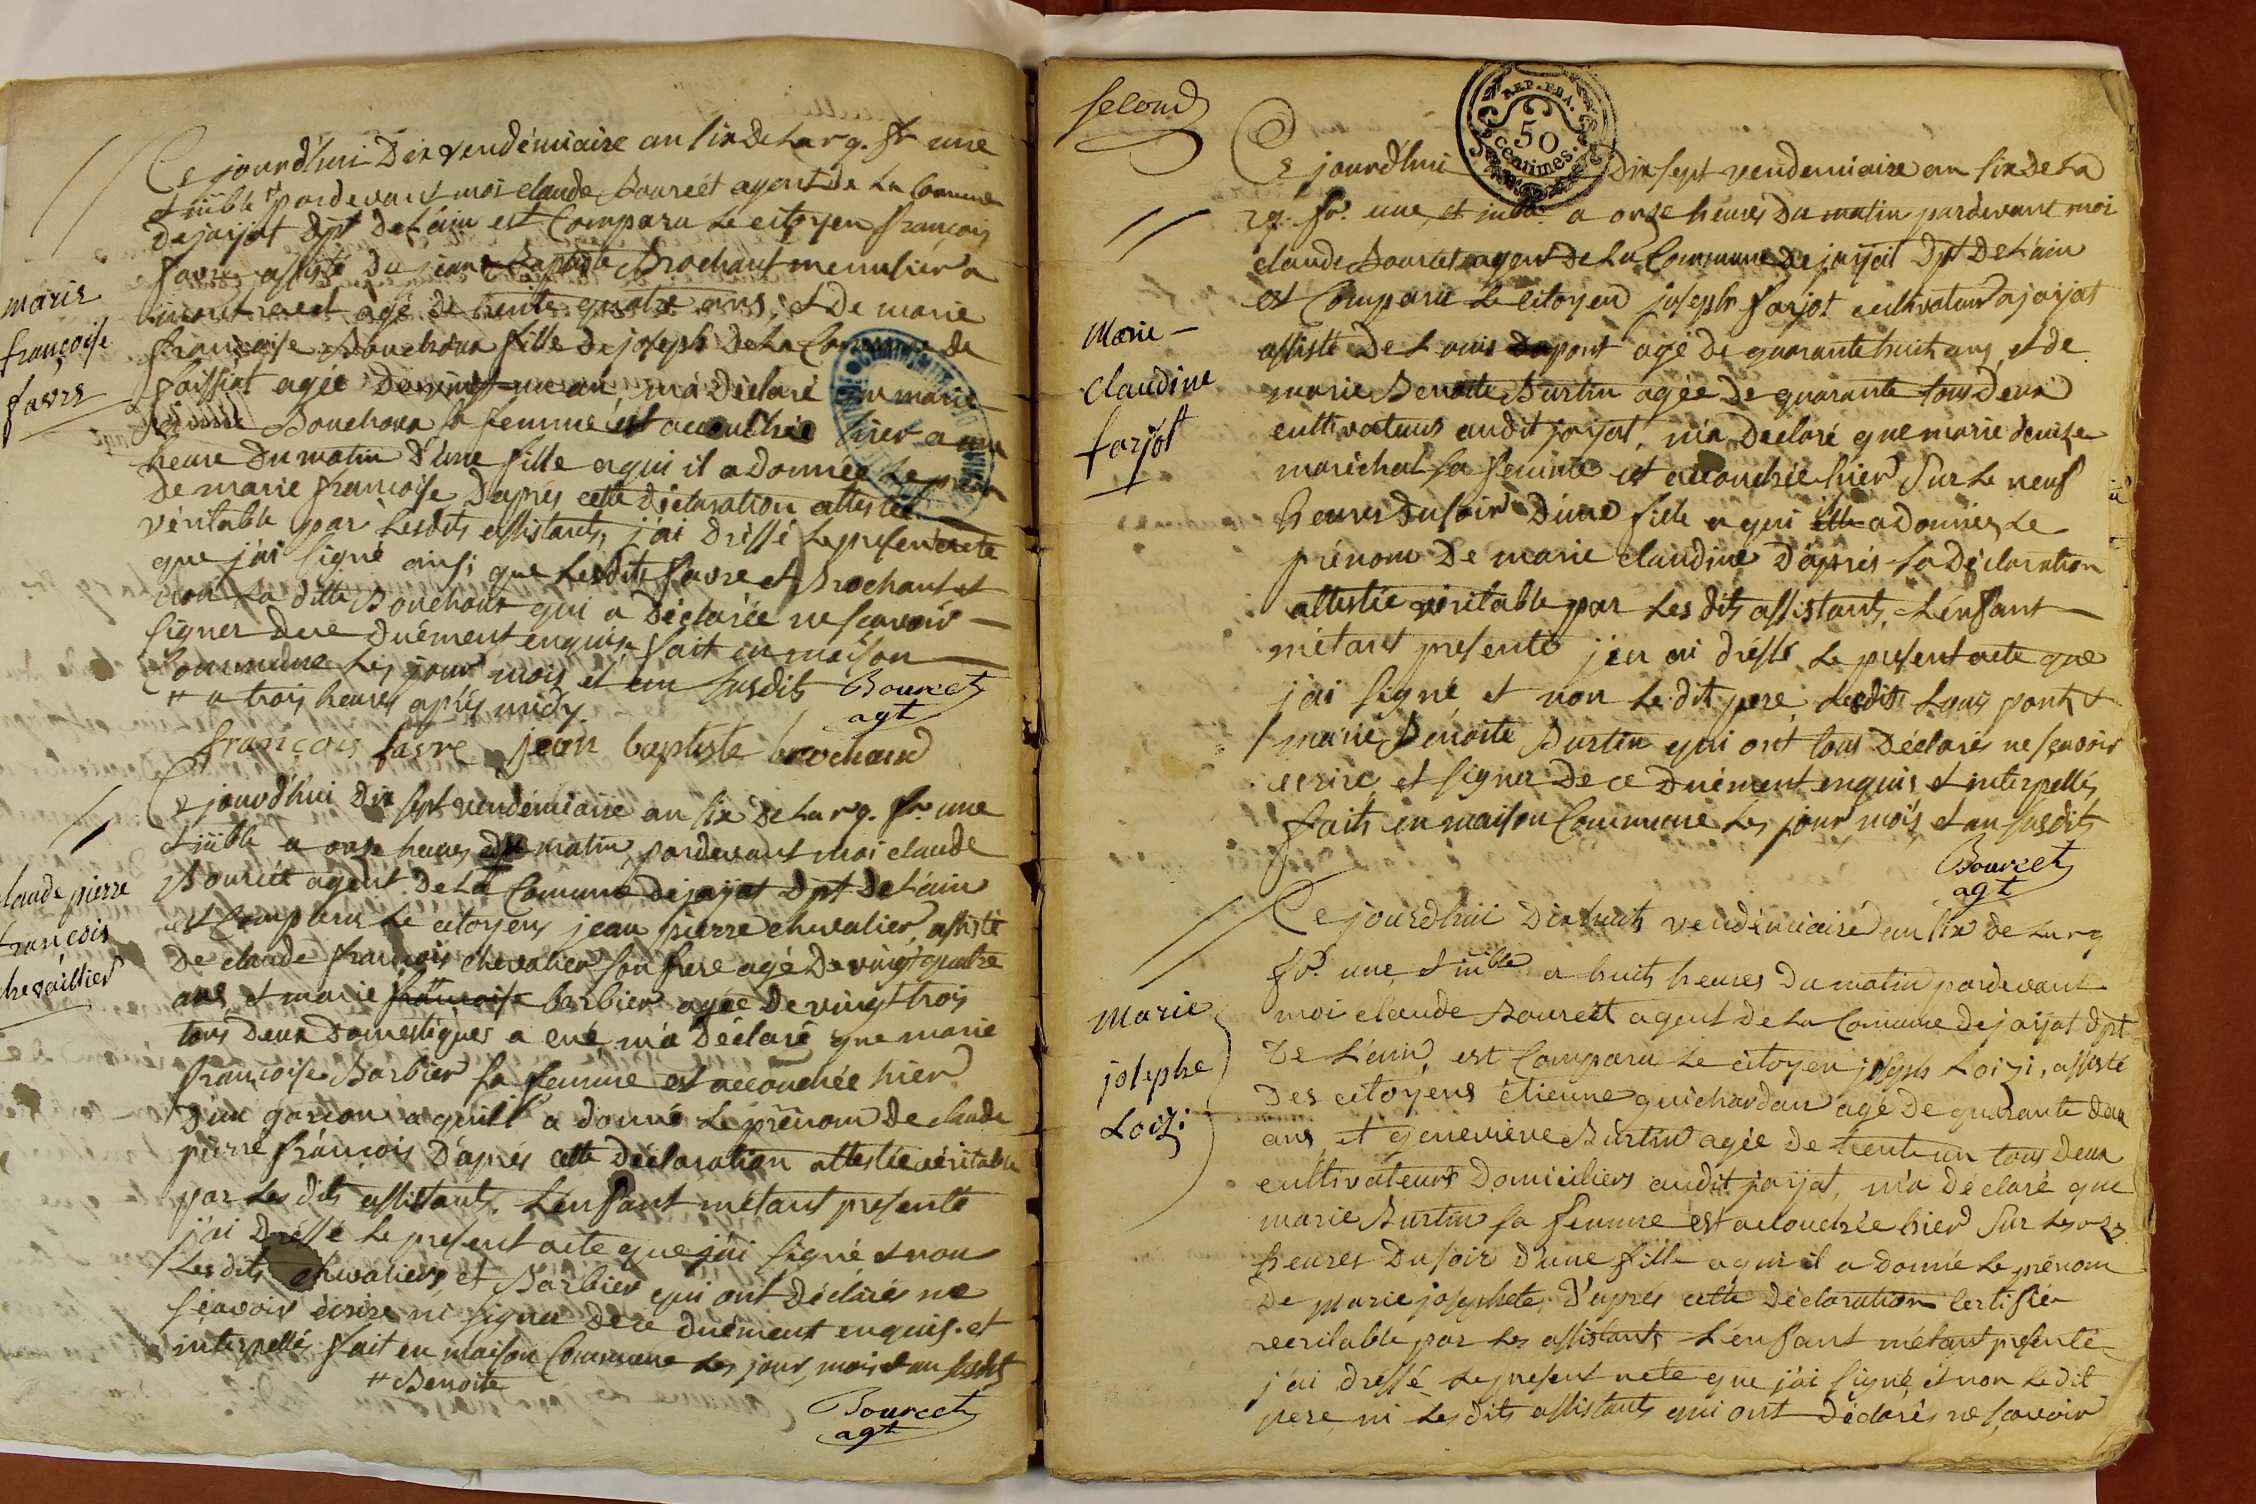 Ce jourd'hui Dix vendémiaire an six de La rq. fr une
et iible # pardevant moi claude Bourcet agent de La Commune
de jayat Dpt De L'ain est Comparu Le citoyen françois
favre assisté de jean Baptiste Brochant menuisier a
montrevel agé de trente quatre ans, et De marie
françoise Bouchoux fille De joseph De La Commune de
foissiat agée De vingt un an, m'a Déclaré que marie
Bouchoux sa femme est accouchée hier a une
heure Du matin D'une fille a qui il a donnée Le prénom
De marie françoise D'aprés cette Déclaration attestée
véritable par Lesdits assistants, j'ai Dréssé Le present acte
que j'ai signé ainsi que Lesdits favre et Brochant et
non La ditte Bouchoux qui a Déclarée ne sçavoir
signer de ce Duëment enquise fait en maison
Commune Les jour mois et an susdits Bourcet
# a trois heures aprés midy. agt
françois favre jean baptiste brochand
marie
françoise
favre
Ce jourd'hui Dix sept vendémiaire an six De La rq. fr. une
et iible a onze heures du matin, pardevant moi claude
Bourcet agent De La Comune De jayat Dpt De L'ain
est Comparu Le citoyen jean pierre chevalier, assisté
De claude françois chevalier son frere agé De vingt quatre
ans, et marie françoise barbier agée De vingt trois
tous Deux Domestiques a cué, m'a Déclaré que marie
françoise Barbier sa femme est accouchée hier
D'un garcon a qu'il a donné Le prénom De claude
pierre françois D'aprés cette Déclaration attestée véritable
par Les dits assistants. L'enfant m'étant presenté
j'ai Dréssé Le present acte que j'ai signé et non
Les dits chevaliers et Barbier qui ont Déclarés ne
sçavoir écrire ni signer De ce duëment enquis. et
interpellés fait en maison Commune Les jour, mois et an susdits
# Benoite
Bourcet
agt
claude pierre
françois
chevaillier
second
REP. FRA.
50
centimes.
Ce jourd'hui Dix sept vendemiaire an six De La
rq. fr. une et iible a onze heures Du matin pardevant moi
claude Bourcet agent De La Commune De jayat Dpt De L'ain
est Comparu Le Citoyen joseph farjot cultivateur a jayat
assisté De Louis Dupont agé De quarante huit ans, et de
marie Benoite Burtin agée De quarante tous Deux
cultivateurs audit jayat, m'a Déclaré que marie denize
maréchal sa femme est accouchée hier Sur Le neuf
heures Du soir D'une fille a qui il a donnée Le
prénom De marie claudine D'aprés La Déclaration
attestée véritable par Les dits assistants, L'enfant
m'étant presenté j'en ai dréssé Le present acte que
j'ai signé, et non Le dit pere, Lesdits Louis pont &
marie Benoite Burtin qui ont tous Déclarés ne sçavoir
ecrire et signer De ce Duëment enquis et interpellés
faits en maison Commune Les jour mois, et an susdits
Bourcet
agt
Marie
claudine
farjot
Ce jourd'hui Dix huit vendémiaire an six de La rq
fr. une et iible a huit heures Du matin pardevant
moi claude Bourcet agent De La Comune De jayat Dpt
De L'ain, est Comparu Le citoyen joseph Loizi, assisté
Des citoyens étienne guichardan agé De quarante deux
ans et genevieve Burtin agée De trente un tous Deux
cultivateurs Domiciliers audit jayat, m'a déclaré que
marie Burtin sa femme est accouchée hier Sur Les onze
heures Du soir D'une fille a qui il a donné Le prénom
De marie josephete, D'aprés cette Déclaration Certifiée
veritable par Les assistants L'enfant m'étant presenté
j'ai dréssé Le present acte que j'ai signé, et non Le dit
pere, ni Les dits assistants qui ont Déclarés ne sçavoir
Marie
josephe
Loizi